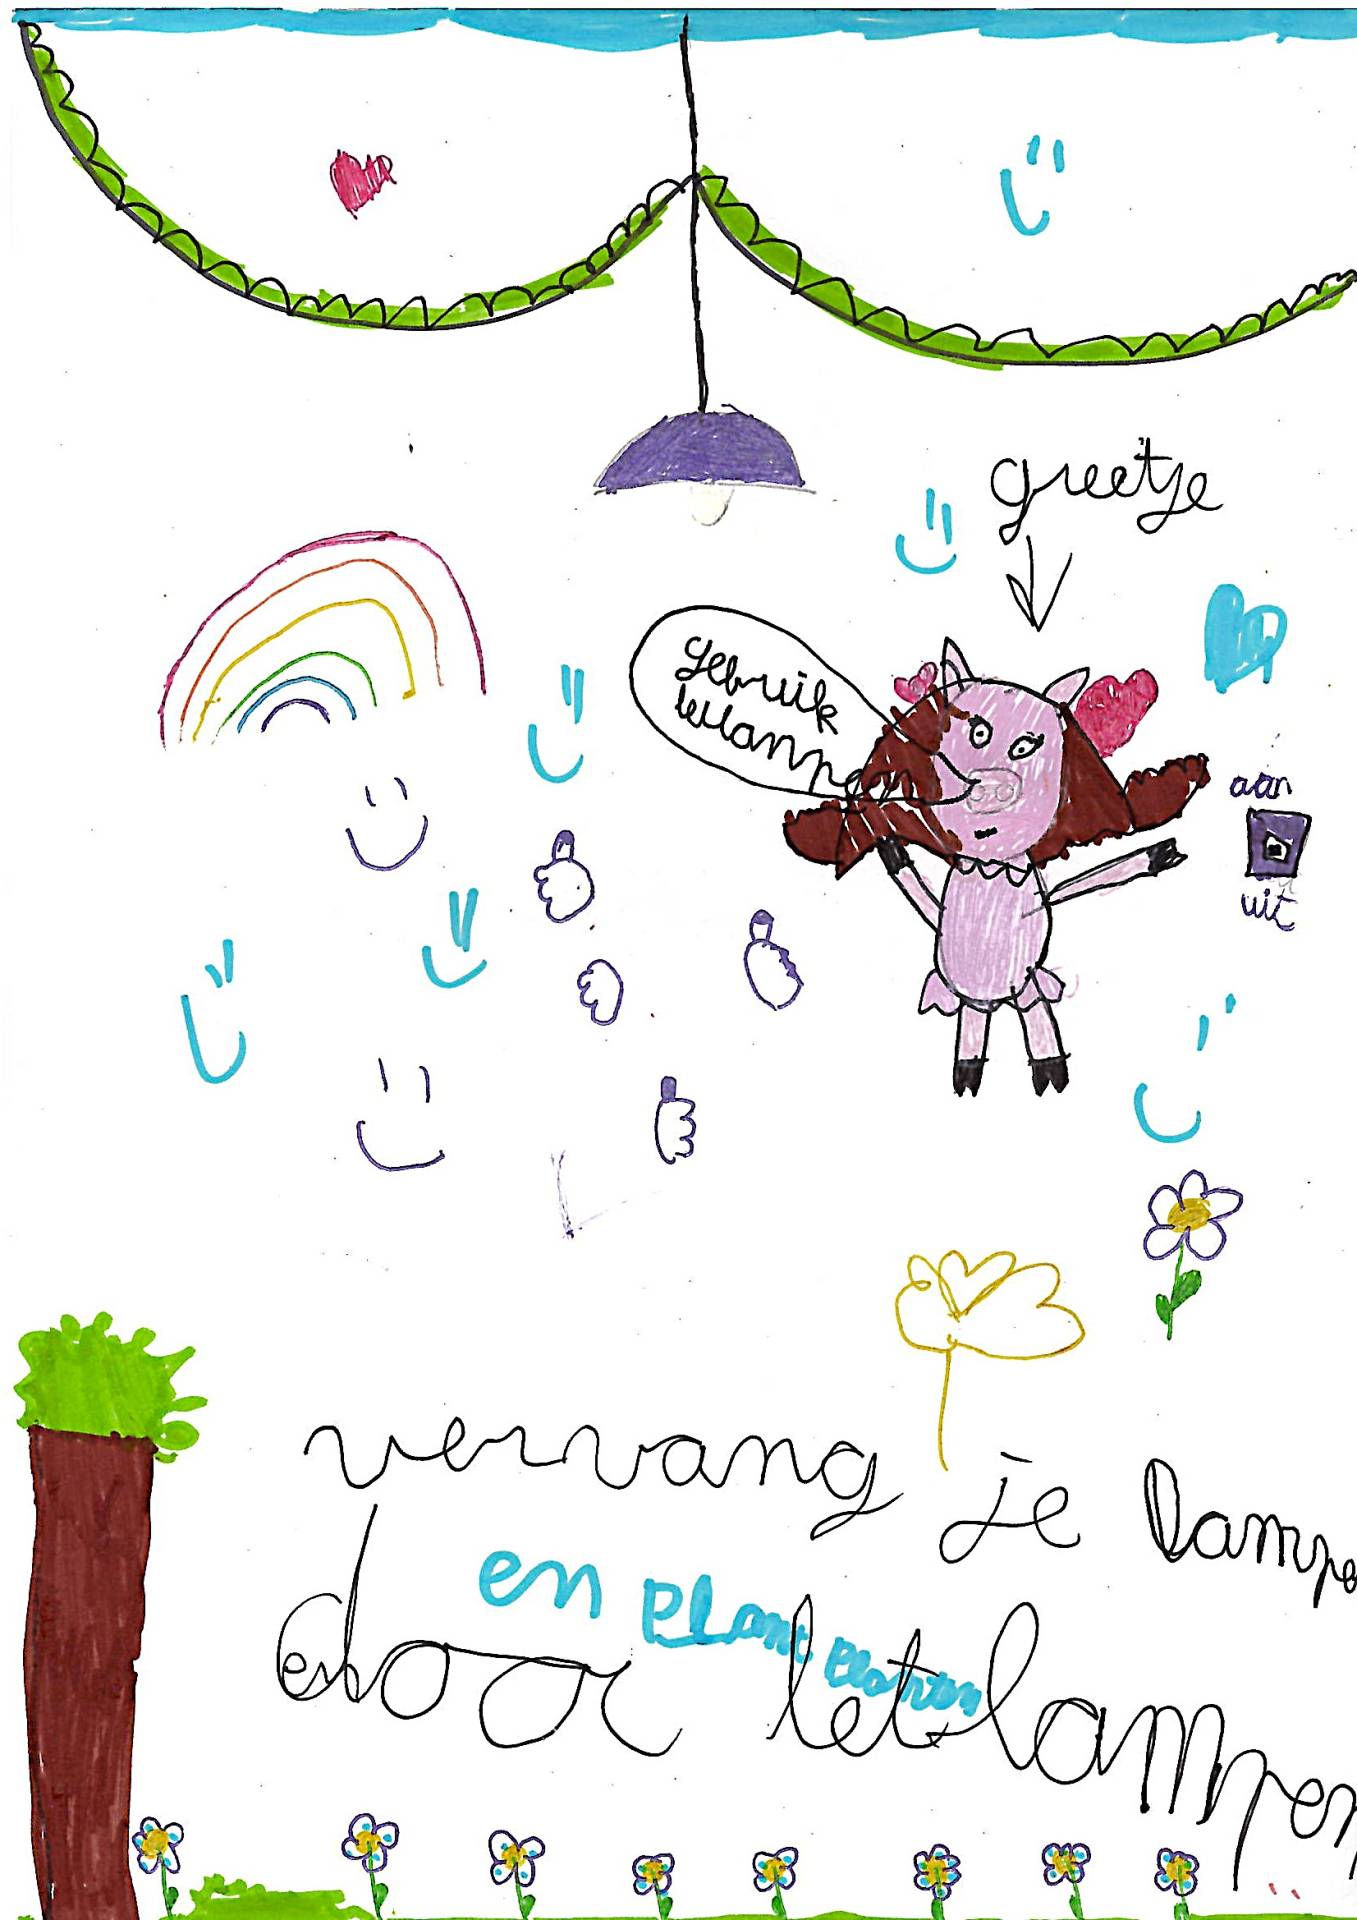 greetje
gebruik
letlampen
aan
uit
vervang je lampe
en plant planten
en door letlampen